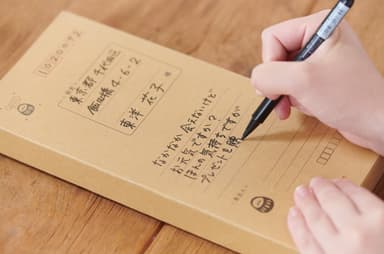 東京都 千代田区
飯田橋 4-6-2
東洋 花子 様
なかなか 会えないけど
お元気ですか?
ほんの気持ちですが
プレゼントを